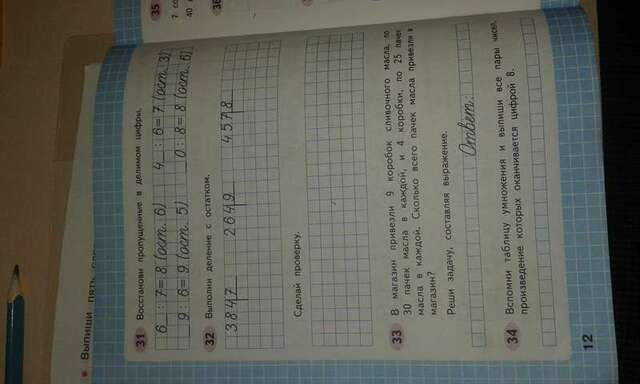 Выпиши пять
31 Восстанови пропущенные в делимом цифры.
6_ : 7= 8 (ост. 6) 4_ : 6= 7 (ост. 3)
_9 : 6= 9 (ост. 5) _0 : 8= 8 (ост. 6)
32 Выполни деление с остатком.
384 7 264 9 457 8
Сделай проверку.
33 В магазин привезли 9 коробок сливочного масла, по
30 пачек масла в каждой, и 4 коробки, по 25 пачек
масла в каждой. Сколько всего пачек масла привезли в
магазин?
Реши задачу, составляя выражение.
Ответ:
34 Вспомни таблицу умножения и выпиши все пары чисел,
произведение которых оканчивается цифрой 8.
12
35
7
40
36